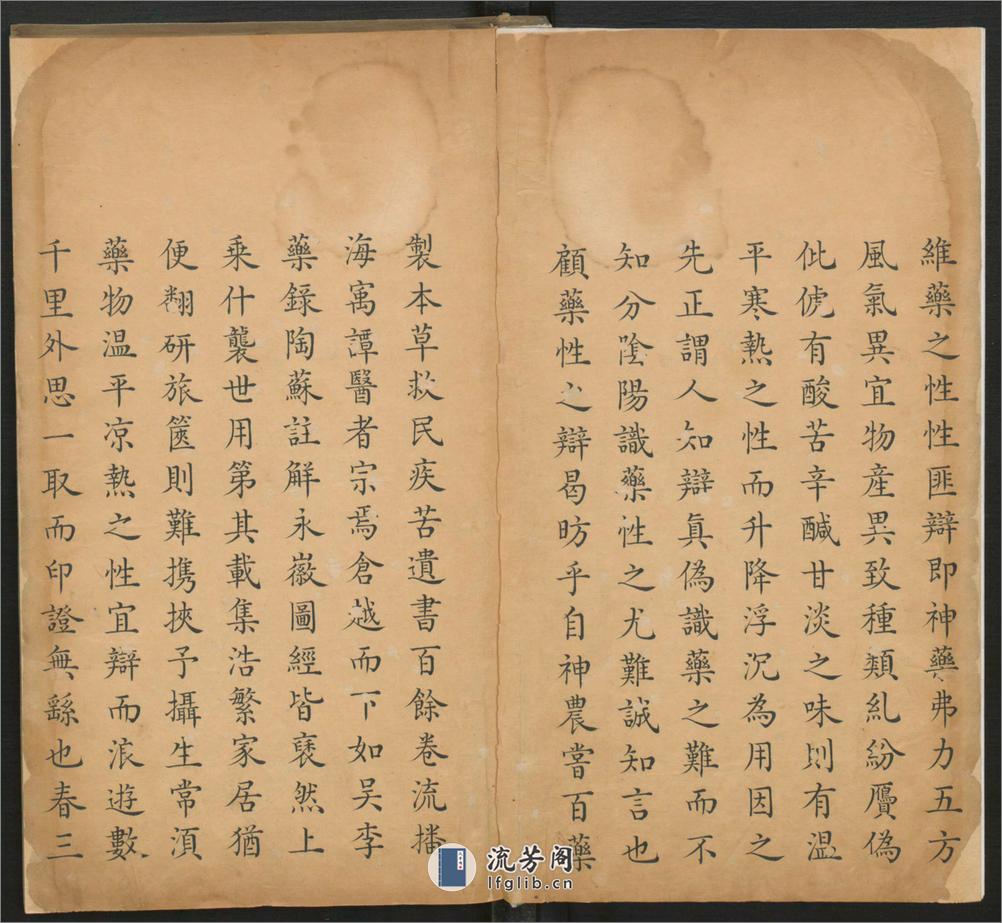 維藥之性性匪辯即神藥弗力五方
風氣異宜物產異致種類糺紛贗偽
仳傂有酸苦辛醎甘淡之味則有温
平寒熱之性而升降浮沉為用因之
先正謂人知辯真偽識藥之難而不
知分陰陽識藥性之尤難誠知言也
顧藥性之辯曷昉乎自神農嘗百藥
製本草救民疾苦遺書百餘卷流播
海㝢譚醫者宗焉倉越而下如吴李
藥錄陶蘇註解永嶶圖經皆裒然上
乗什襲世用第其載集浩繁家居猶
便翻研旅篋則難携挾予攝生常湏
藥物温平凉熱之性宜辯而浪遊數
千里外思一取而印證無繇也春三
流芳阁
lfglib.cn